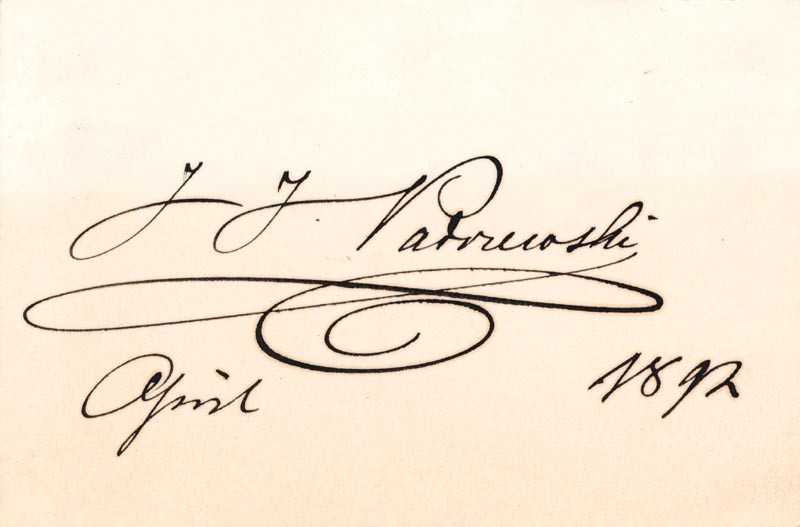 I J Paderewski
April 1892